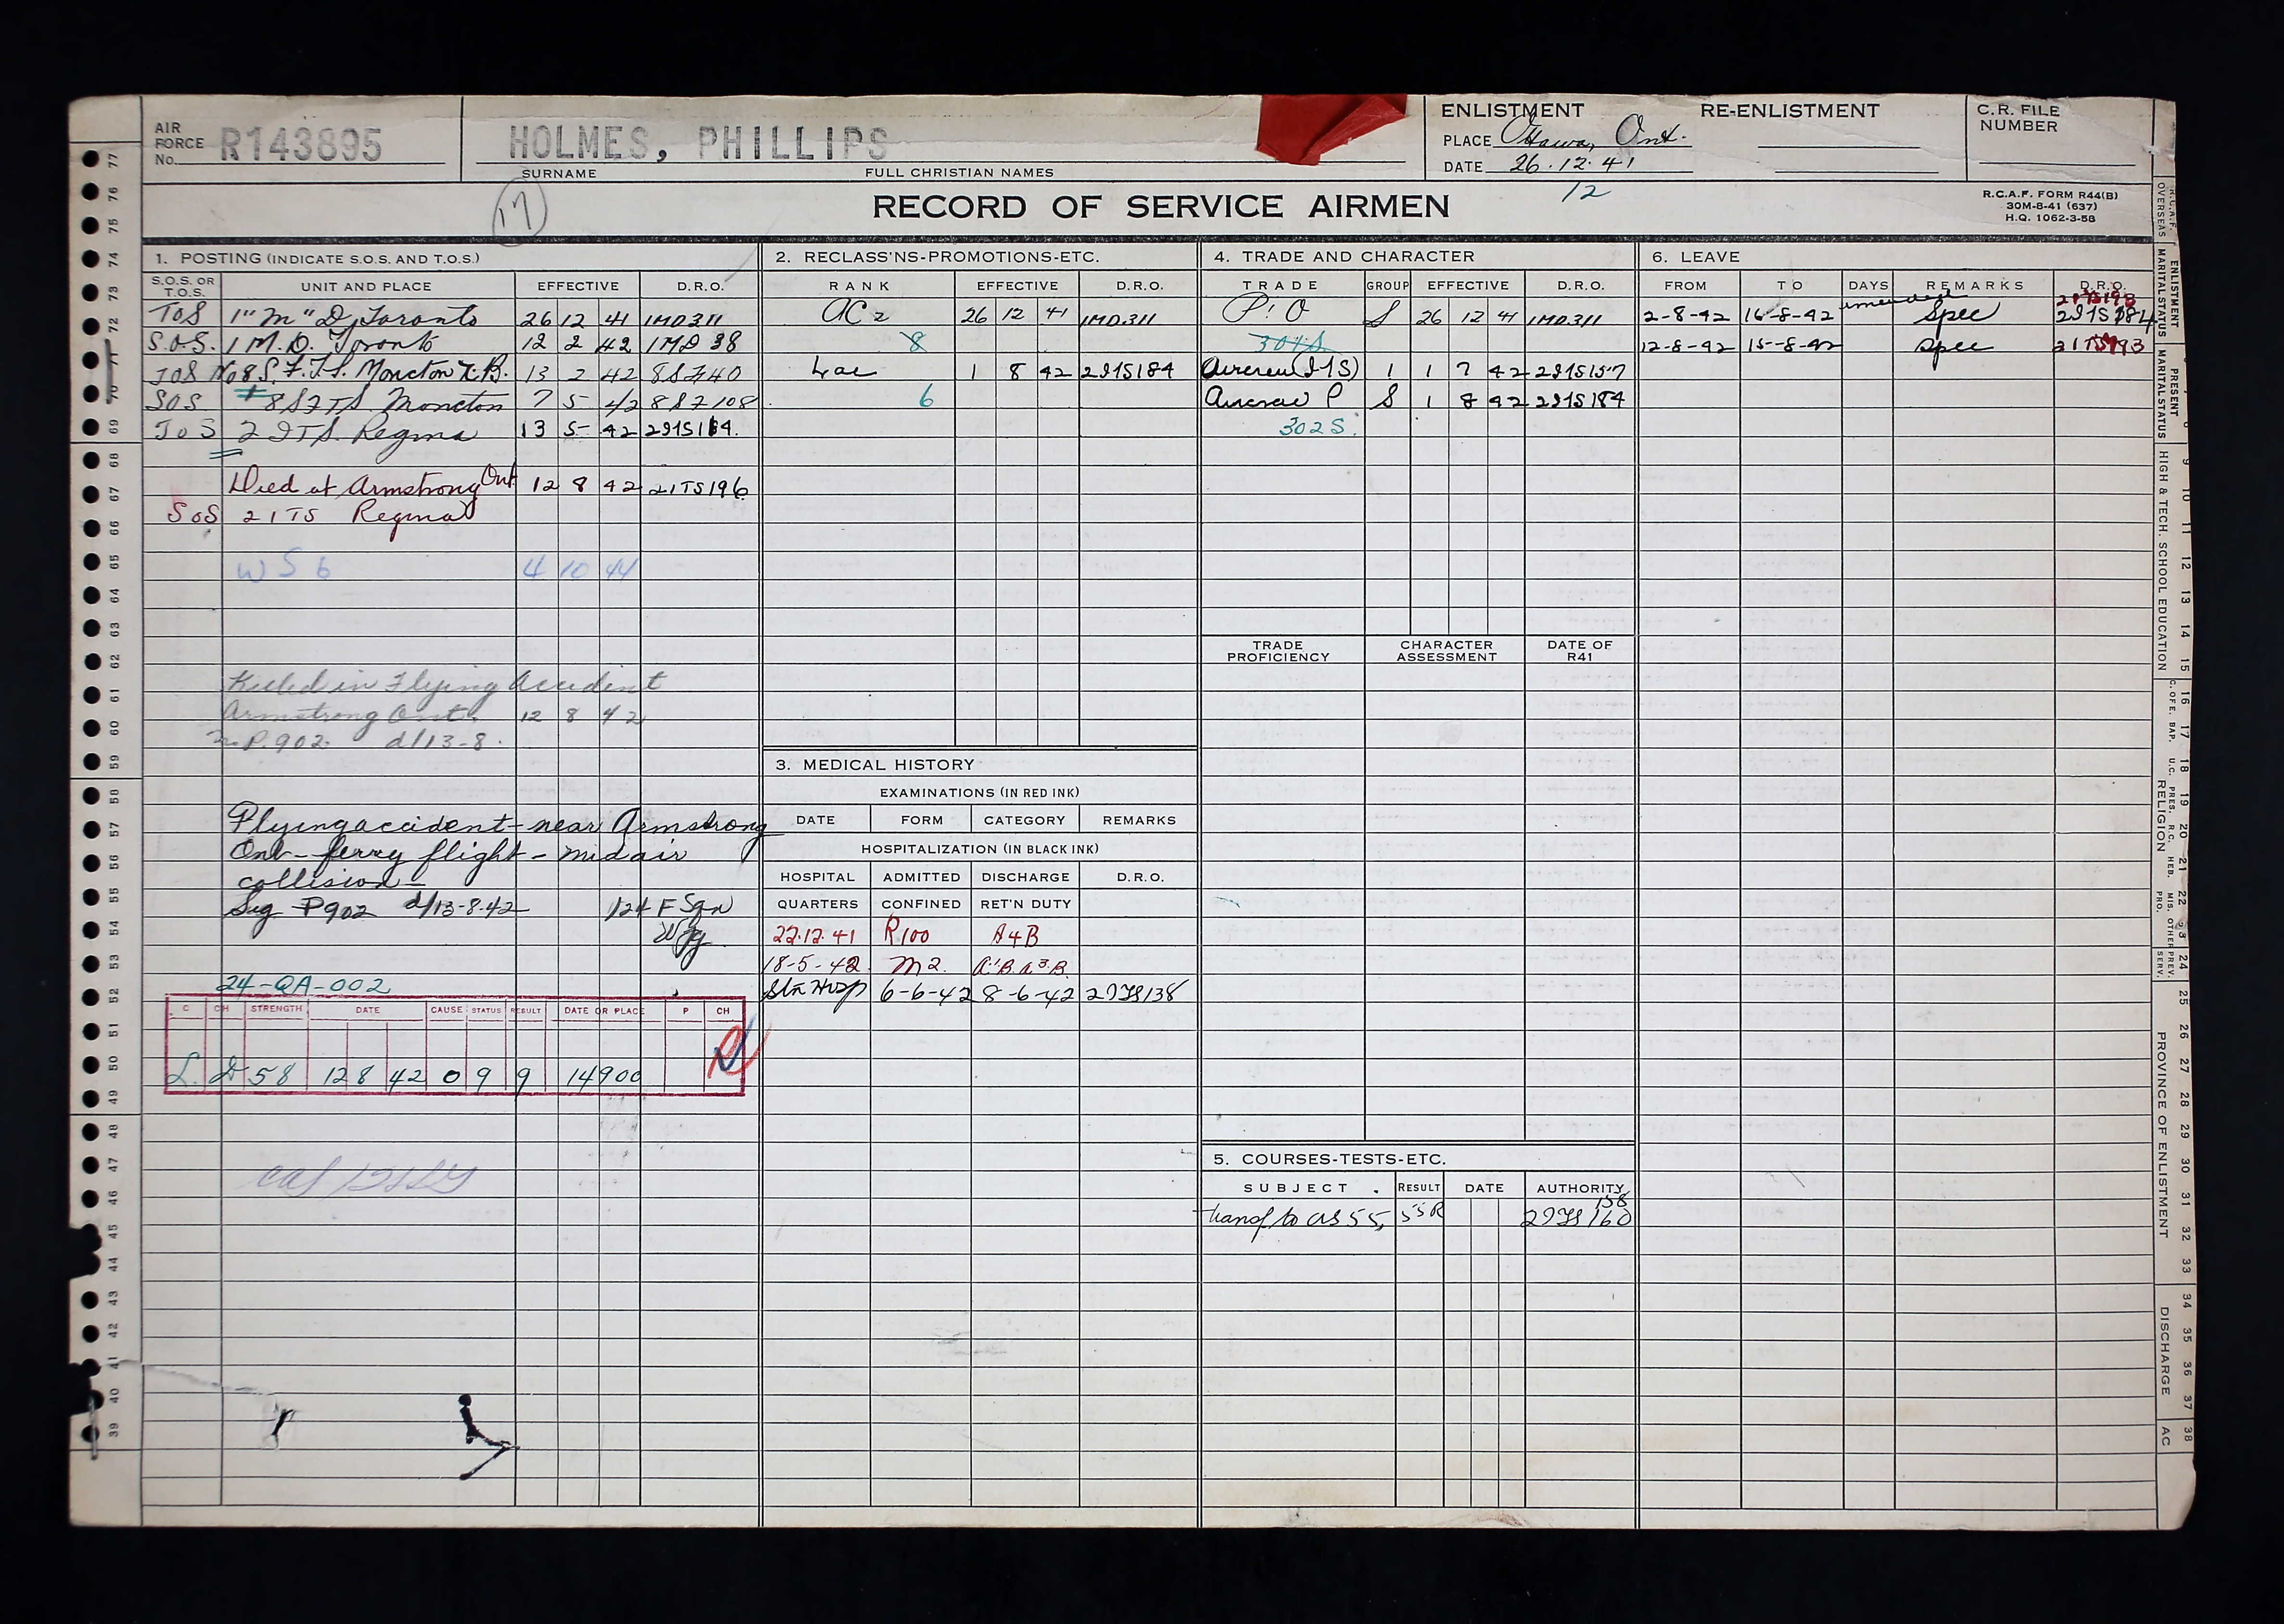 AIR FORCE No. R143895
HOLMES, PHILLIPS
SURNAME FULL CHRISTIAN NAMES
ENLISTMENT RE-ENLISTMENT
PLACE Ottawa, Ont.
DATE 26.12.41
12
C.R. FILE NUMBER
17
RECORD OF SERVICE AIRMEN
R.C.A.F. FORM R44(B)
30M-8-41 (637)
H.Q. 1062-3-58
1. POSTING (INDICATE S.O.S. AND T.O.S.)
S.O.S. OR T.O.S. UNIT AND PLACE EFFECTIVE D.R.O.
TOS 1 "M" D, Toronto 26 12 41 1MD311
S.O.S. 1 M.D. Toronto 12 2 42 1MD 38
TOS No 8 S.F.T.S. Moncton N.B. 13 2 42 8SF40
SOS 8 SFTS Moncton 7 5 42 8SF108
TOS 2 ITS. Regina 13 5 42
Died at Armstrong Ont 12 8 42 2ITS196
SOS 2ITS Regina
WS6 4 10 44
Killed in Flying Accident
Armstrong Ont. 12 8 42
P.902. d/13-8.
Flying accident - near Armstrong
Ont - ferry flight - midair
collision -
Sig P902 d/13-8-42 124 F Sqn
24-QA-002
C CH STRENGTH DATE CAUSE STATUS RESULT DATE OR PLACE P CH
L. D 58 12 8 42 0 9 9 14900
2. RECLASS'NS-PROMOTIONS-ETC.
RANK EFFECTIVE D.R.O.
AC2 26 12 41 1MD.311
8
Lac 1 8 42 2ITS184
6
3. MEDICAL HISTORY
EXAMINATIONS (IN RED INK)
DATE FORM CATEGORY REMARKS
HOSPITALIZATION (IN BLACK INK)
HOSPITAL ADMITTED DISCHARGE D.R.O.
QUARTERS CONFINED RET'N DUTY
22.12.41 R100 A4B
18-5-42. M2. A1B. A3B.
Stn Hosp 6-6-42 8-6-42 2ITS138
4. TRADE AND CHARACTER
TRADE GROUP EFFECTIVE D.R.O.
P/O S 26 12 41 1MD.311
301S
Aircrew (ITS) 1 1 7 42 2ITS157
Aircrew P S 1 8 42 2ITS184
302S.
TRADE PROFICIENCY CHARACTER ASSESSMENT DATE OF R41
5. COURSES-TESTS-ETC.
SUBJECT. RESULT DATE AUTHORITY
158
transf to CS 55, 55R 2ITS160
6. LEAVE
FROM TO DAYS REMARKS D.R.O.
amended 2ITS193
2-8-42 16-8-42 Spec 2ITS184
12-8-42 15-8-42 Spec 2ITS193
77 76 75 74 73 72 71 70 69 68 67 66 65 64 63 62 61 60 59 58 57 56 55 54 53 52 51 50 49 48 47 46 45 44 43 42 41 40 39
R.C.A.F. OVERSEAS
ENLISTMENT MARITAL STATUS
PRESENT MARITAL STATUS
HIGH & TECH. SCHOOL EDUCATION
C. OF E. BAP. U.C. PRES. R.C. HEB. MIS. OTHER PRO.
RELIGION
PREV. SERV.
PROVINCE OF ENLISTMENT
DISCHARGE
AC
9 10 11 12 13 14 15 16 17 18 19 20 21 22 23 24 25 26 27 28 29 30 31 32 33 34 35 36 37 38